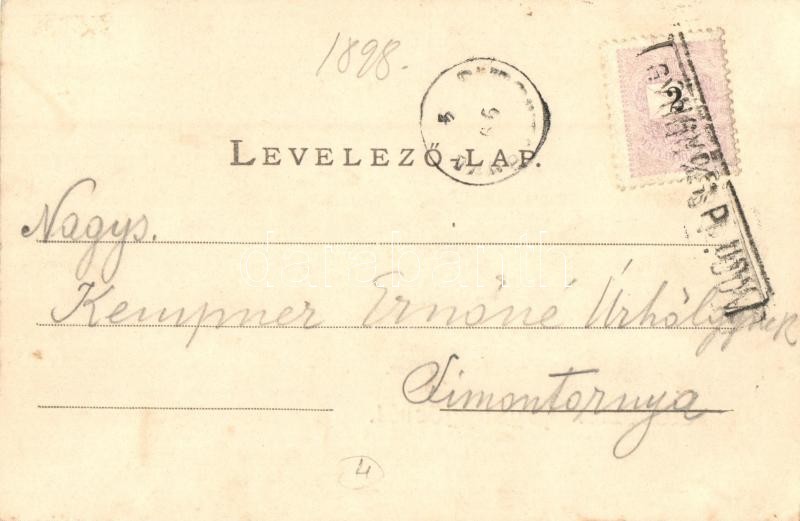 1898.
2
LEVELEZŐ-LAP.
Nagys.
Kempner Ernőné Úrhölgynek
Simontornya
4